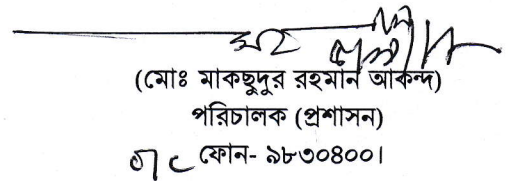 (মোঃ মাকছুদুর রহমান আকন্দ)
পরিচালক (প্রশাসন)
ফোন- ৯৮৩০৪০০।